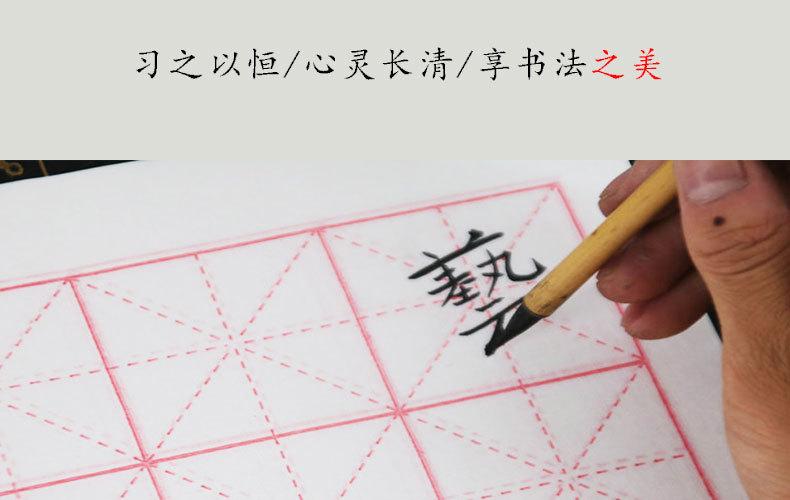 习之以恒/心灵长清/享书法之美
藝